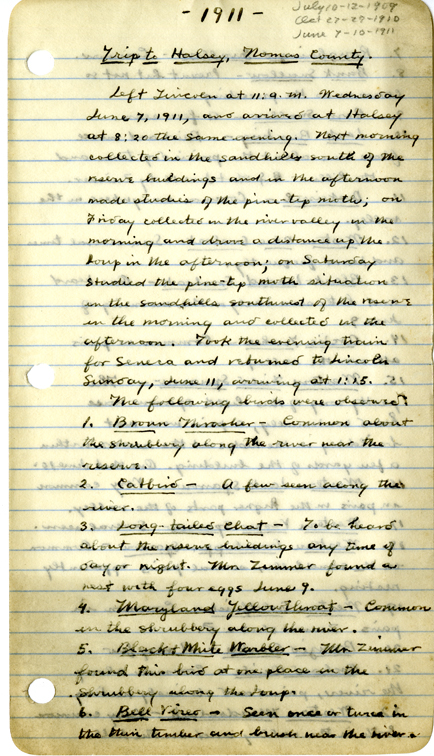 - 1911 -
July 10-12-1909
Oct 27-29-1910
June 7-10-1911
Trip to Halsey, Thomas County.
Left Lincoln at 11:9.m. Wednesday
June 7, 1911, and arrived at Halsey
at 8:20 the same evening. Next morning
collected in the sandhills south of the
reserve buildings and in the afternoon
made studies of the pine-tip moth; on
Friday collected in the river valley in the
morning and drove a distance up the
Loup in the afternoon; on Saturday
studied the pine-tip moth situation
in the sandhills southwest of the reserve
in the morning and collected in the
afternoon. Took the evening train
for Seneca and returned to Lincoln
Sunday, June 11, arriving at 1:15.
The following birds were observed:
1. Brown Thrasher - Common about
the shrubbery along the river near the
reserve.
2. Catbird - A few seen along the
river.
3. Long-tailed Chat - To be heard
about the reserve buildings any time of
day or night. Mr. Zimmer found a
nest with four eggs June 9.
4. Maryland Yellowthroat - Common
in the shrubbery along the river.
5. Black & White Warbler - Mr. Zimmer
found this bird at one place in the
shrubbery along the Loup.
6. Bell Vireo - Seen once or twice in
the thin timber and brush near the river.